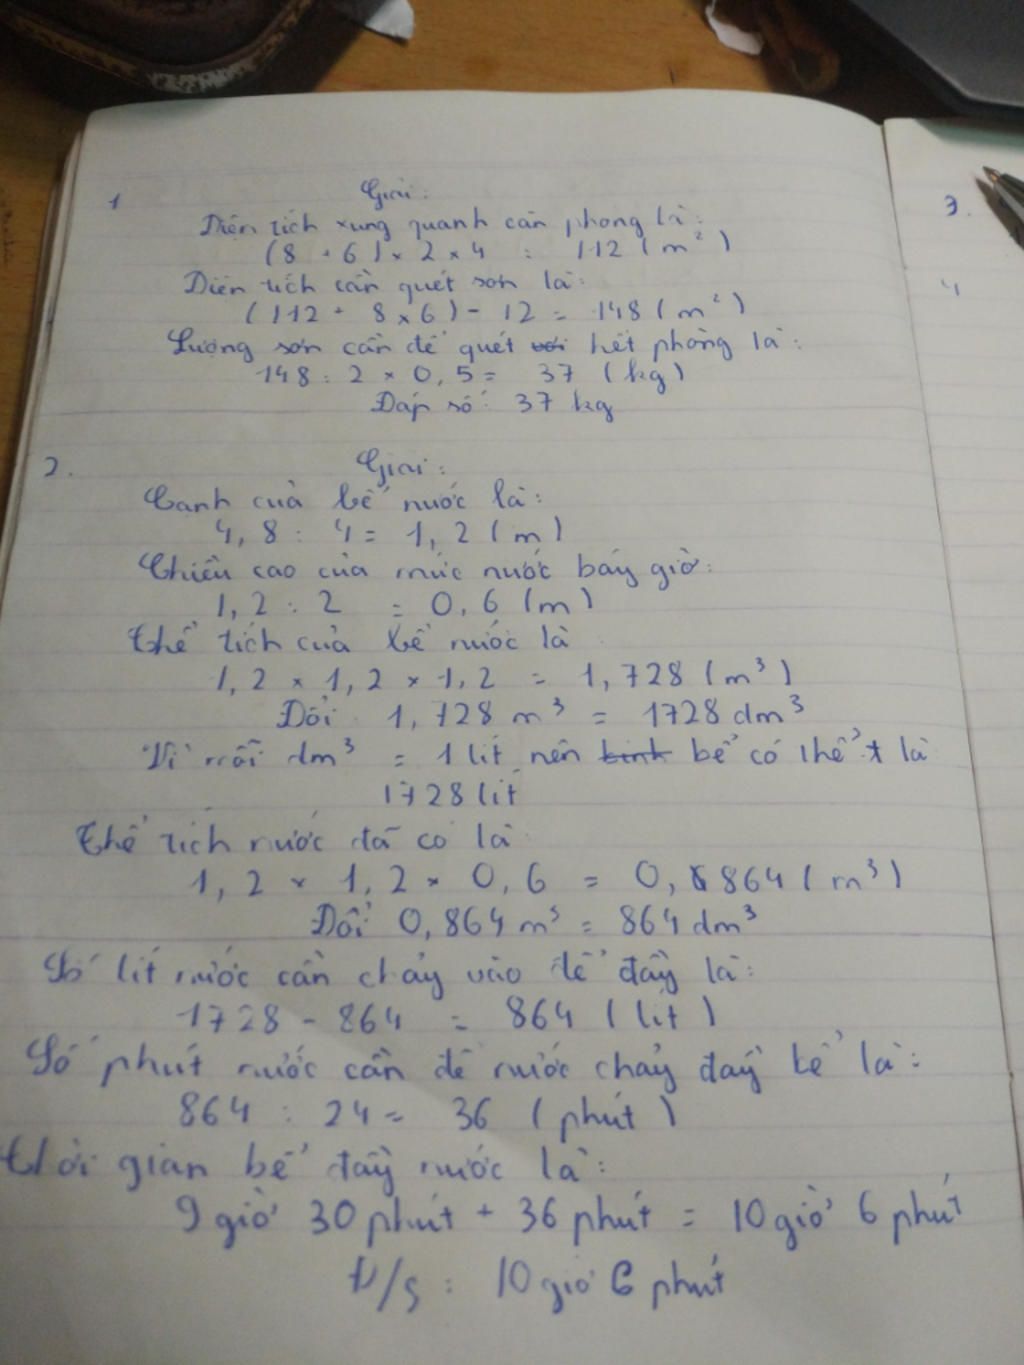 1 Giải:
Diện tích xung quanh căn phòng là:
(8 + 6) × 2 × 4 = 112 (m²)
Diện tích cần quét sơn là:
(112 + 8 × 6) - 12 = 148 (m²)
Lượng sơn cần để quét hết phòng là:
148 : 2 × 0,5 = 37 (kg)
Đáp số: 37 kg
2. Giải:
Cạnh của bể nước là:
4,8 : 4 = 1,2 (m)
Chiều cao của mức nước bây giờ:
1,2 : 2 = 0,6 (m)
Thể tích của bể nước là
1,2 × 1,2 × 1,2 = 1,728 (m³)
Đổi 1,728 m³ = 1728 dm³
Vì mỗi dm³ = 1 lít nên bể có thể t là
1728 lít
Thể tích nước đã có là
1,2 × 1,2 × 0,6 = 0,864 (m³)
Đổi 0,864 m³ = 864 dm³
Số lít nước cần chảy vào để đầy là:
1728 - 864 = 864 (lít)
Số phút nước cần để nước chảy đầy bể là:
864 : 24 = 36 (phút)
Thời gian bể đầy nước là:
9 giờ 30 phút + 36 phút = 10 giờ 6 phút
Đ/s : 10 giờ 6 phút
3.
4